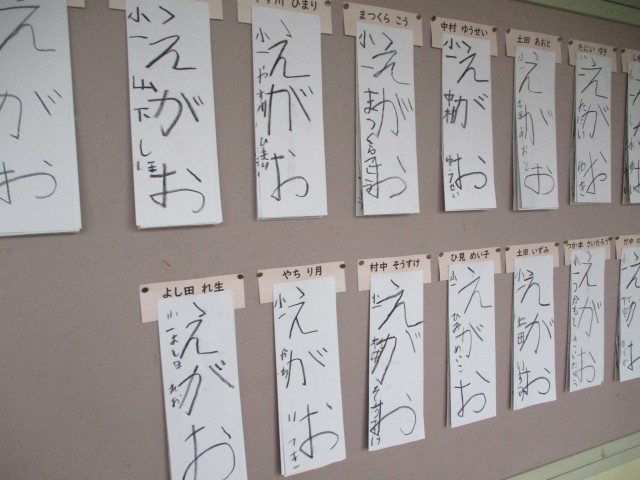 えがお
えがお
小一
山下
ひまり
えがお
小一
ひまり
まつくら こう
えがお
小一
まつくらこう
中村 ゆうせい
えがお
小一
中村
ゆうせい
土田 あおと
えがお
小一
土田あおと
たにい ゆき
えがお
小一
たにい
ゆき
よし田 れ生
えがお
小一
よし田
れお
やち り月
えがお
小一
やち
りつき
村中 そうすけ
えがお
小一
村中
そうすけ
ひ見 めい子
えがお
小一
ひみ
めいこ
土田 いずみ
えがお
小一
土田
いずみ
つか本 さいたろう
えがお